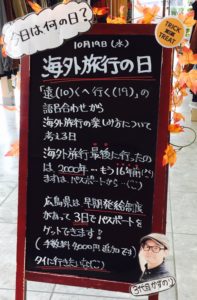 今日は何の日?
TRICK OR TREAT
10月19日(水)
海外旅行の日
「遠(10)くへ行く(19)」の
語呂合わせから
海外旅行の楽しみ方について
考える日
海外旅行最後に行ったの
は2000年…もう16年前!?
まずは、パスポートから…(^_^;)
広島県は早期発給制度
があって3日でパスポートを
ゲットできます!
(手数料 4000円追加です)
タイに行きたいな(^_^)
3代目かずのり